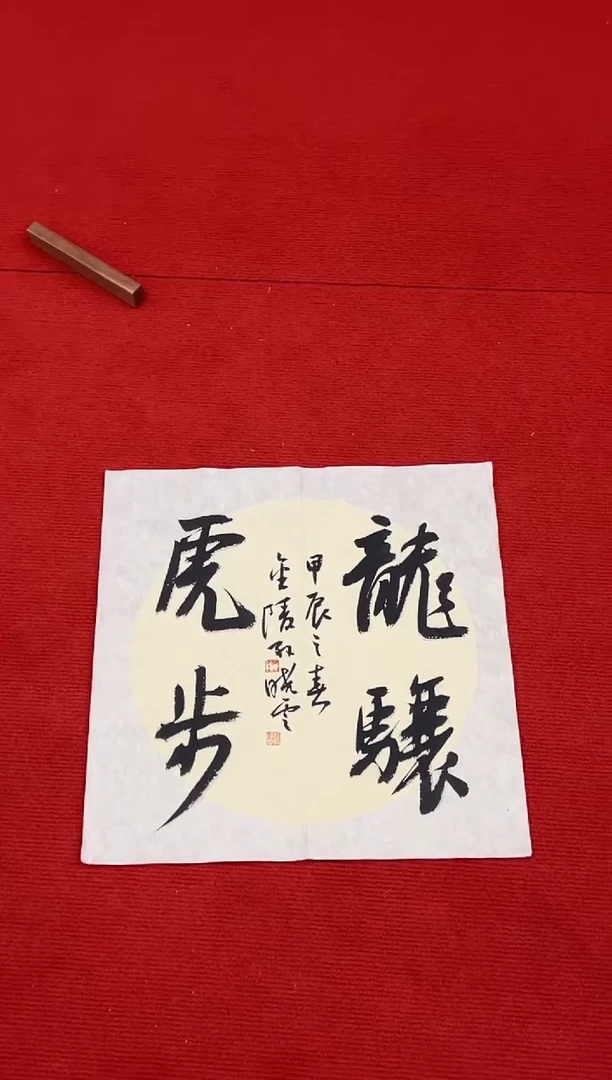 龍驤
甲辰之春
金陵孙曉雲
虎步